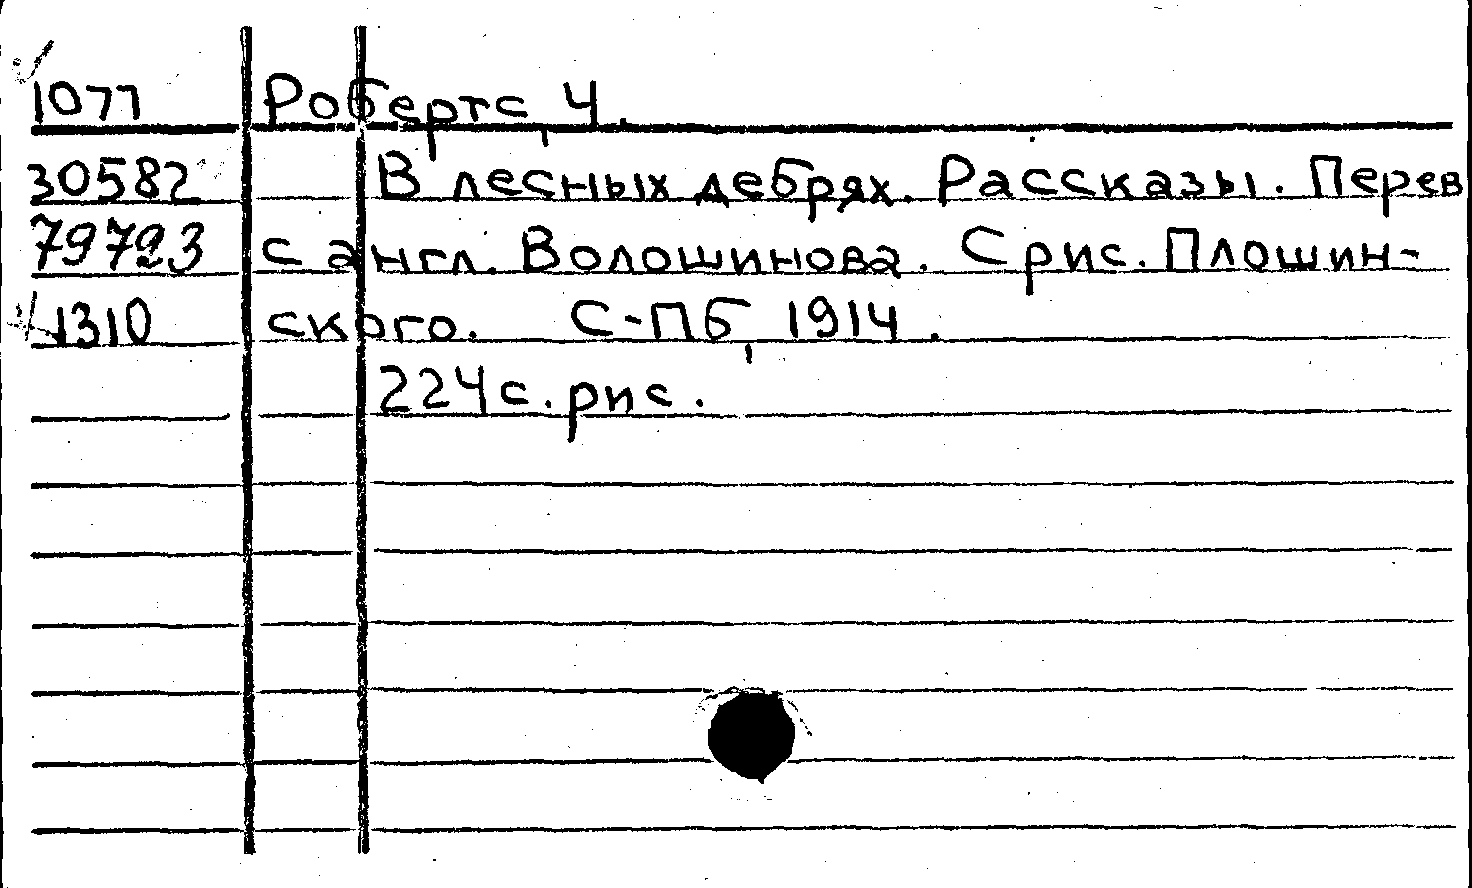 1077 Робертс, Ч.
30582 В лесных дебрях. Рассказы. Перев
79723 с англ. Волошинова. С рис. Плошин-
1310 ского. С-Пб, 1914.
224с. рис.